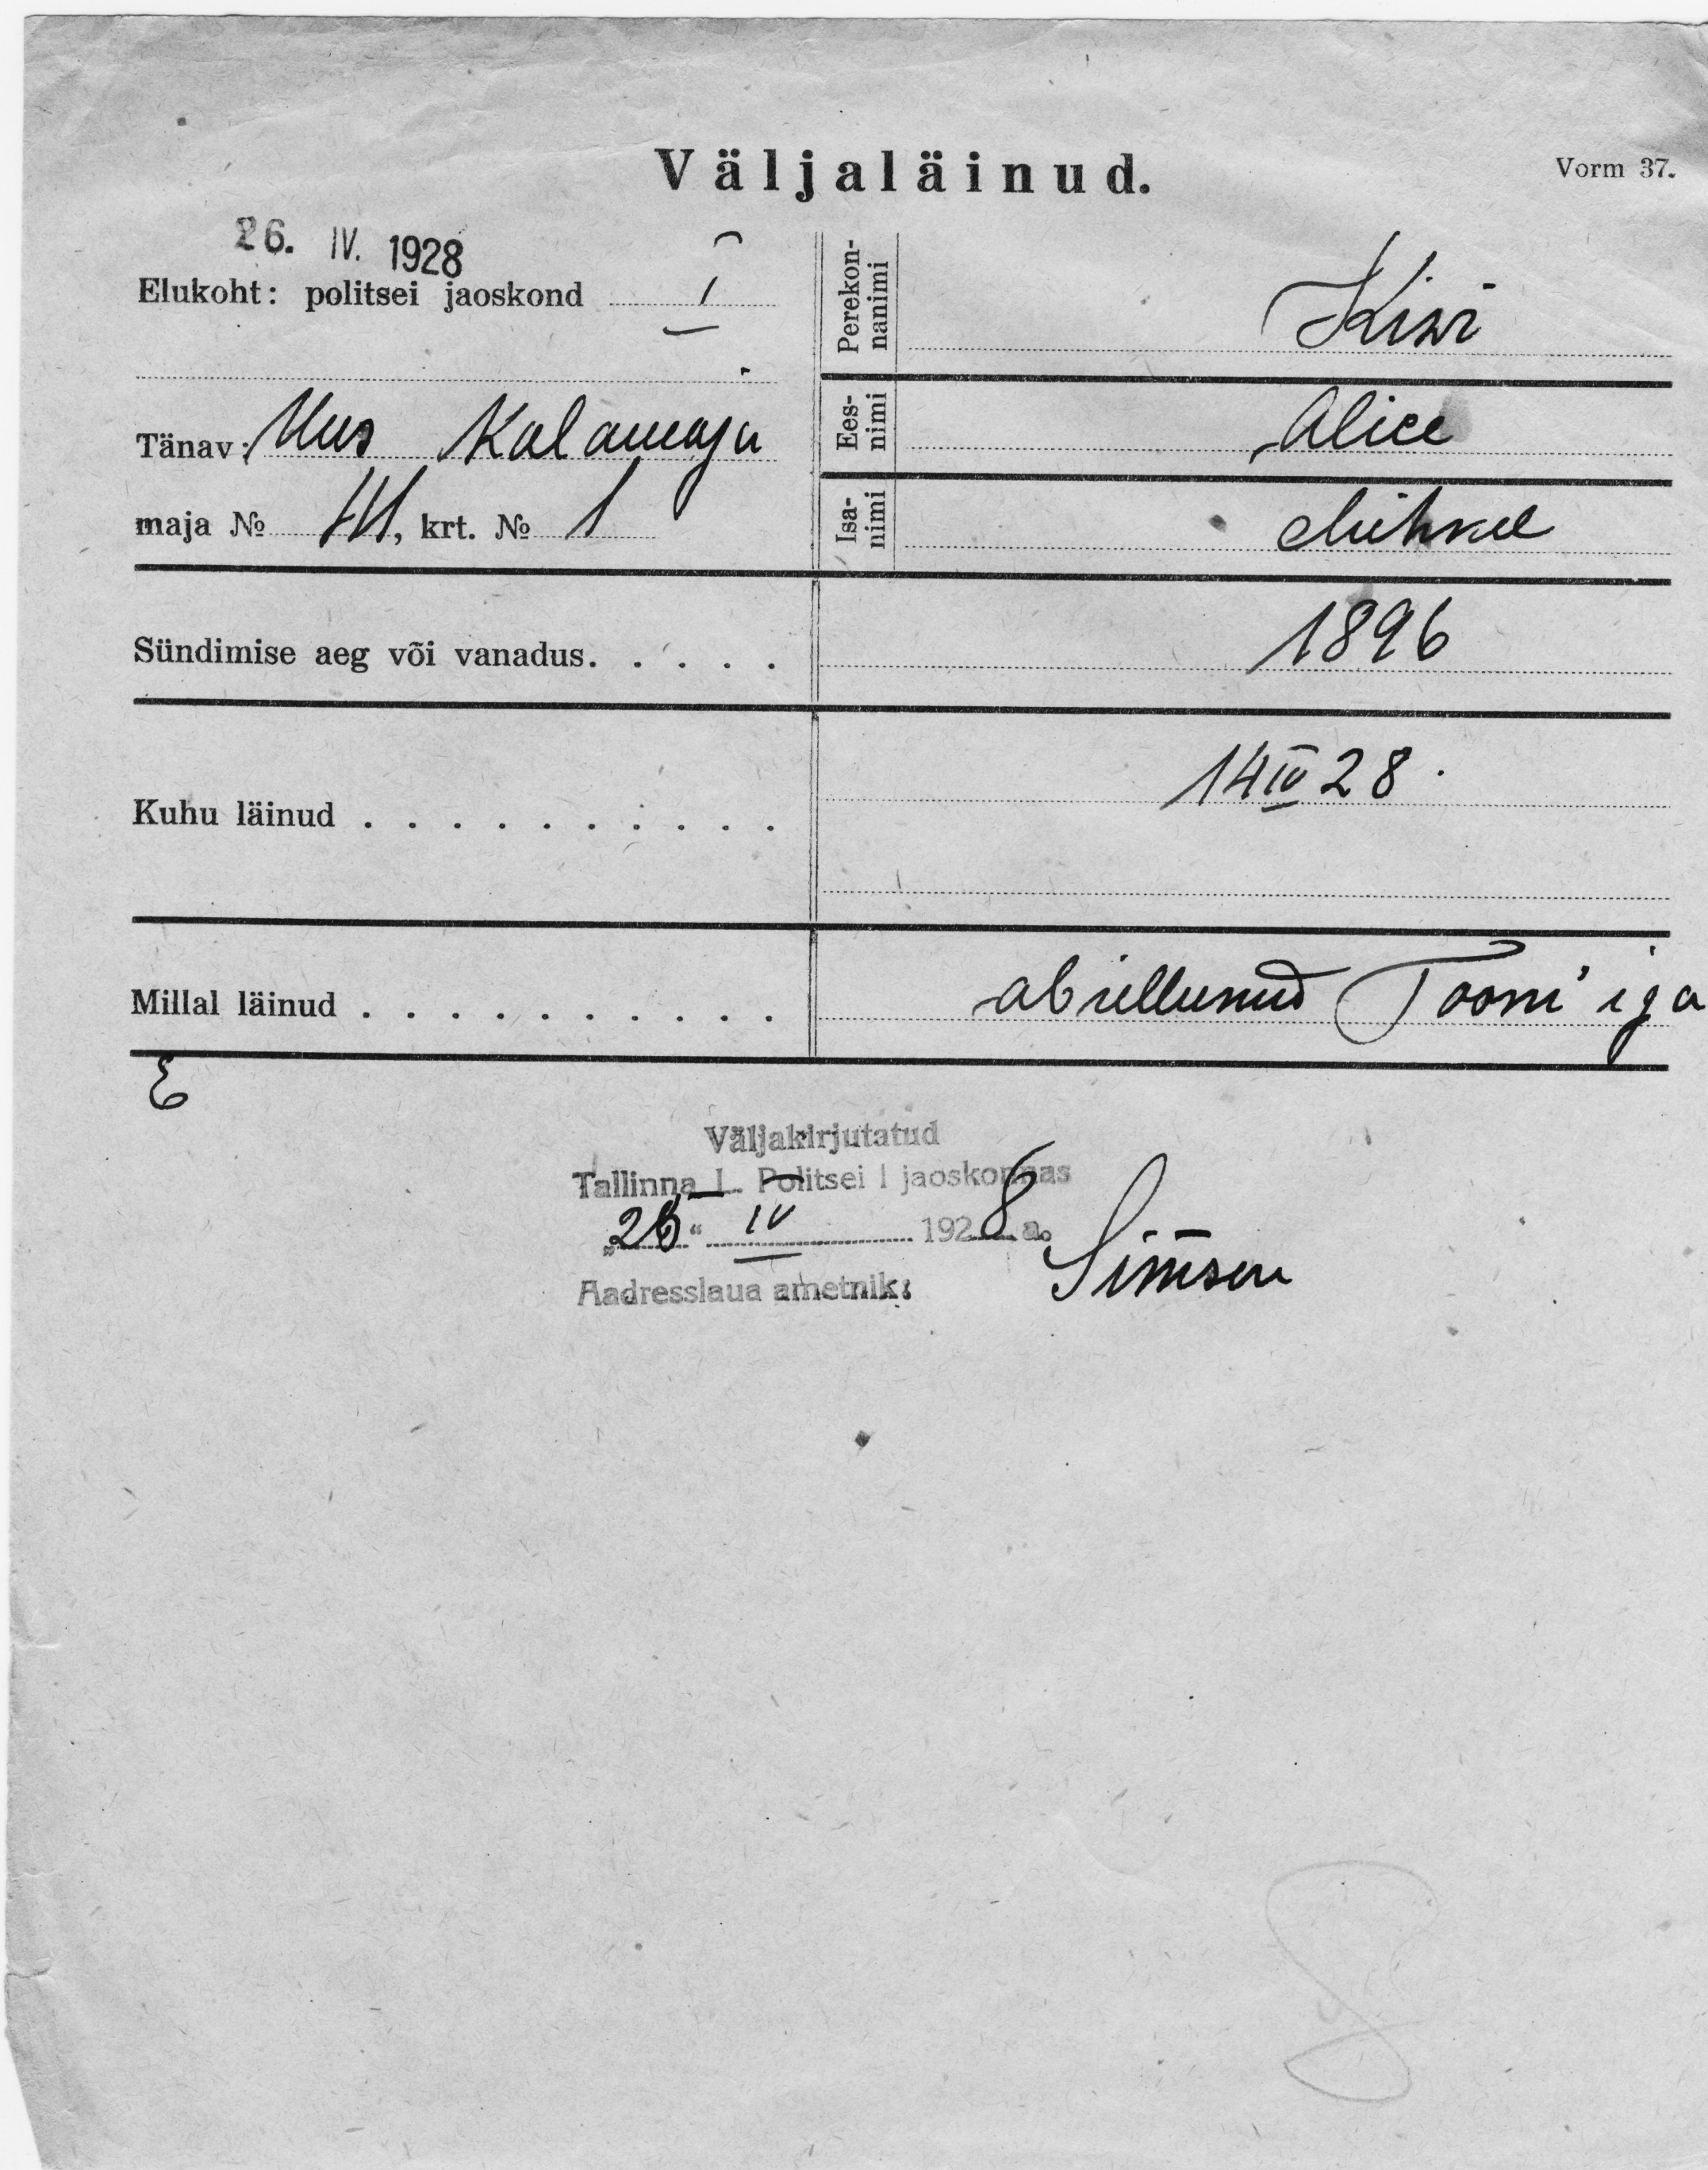 Väljaläinud.
Vorm 37.
26. IV. 1928
Elukoht: politsei jaoskond I
Tänav: Uus Kalamaja
maja № , krt. № 1
Perekon-
nanimi
Kiwi
Ees-
nimi
Alice
Isa-
nimi
Mihkel
Sündimise aeg või vanadus. . . . . 1896
Kuhu läinud . . . . . . . . . . 14 IV 28.
Millal läinud . . . . . . . . . . abiellunud Toom'iga
E
Väljakirjutatud
Tallinna L. Politsei I jaoskonnas
„26“ IV 1928 a.
Aadresslaua ametnik: Simson